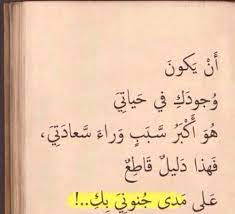 أَنْ يَكونَ
وُجودَكِ في حَياتِيَ
هُوَ أَكْبَرُ سَّبَبٍ وَراءَ سَّعادَتِيَ،
فَهذا دَليلٌ قَاطِعٌ
عَلى مَدى جُنونِيَ بِكِ..!